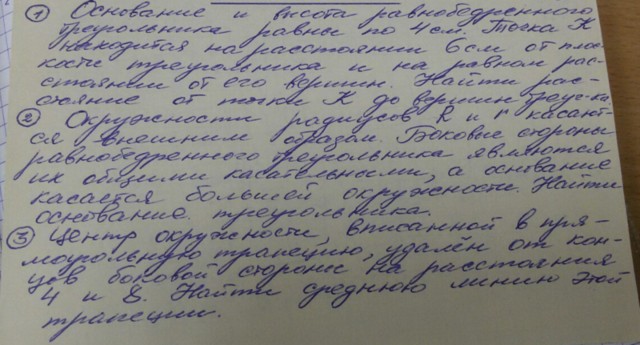 ① Основание и высота равнобедренного
треугольника равны по 4 см. Точка К
находится на расстоянии 6 см от плос-
кости треугольника и на равном рас-
стоянии от его вершин. Найти рас-
стояние от точки К до вершин треуг-ка.
② Окружности радиусов R и r касают-
ся внешним образом. Боковые стороны
равнобедренного треугольника являются
их общими касательными, а основание
касается большей окружности. Найти
основание треугольника.
③ Центр окружности, вписанной в пря-
моугольную трапецию, удалён от кон-
цов боковой стороны на расстояния
4 и 8. Найти среднюю линию этой
трапеции.